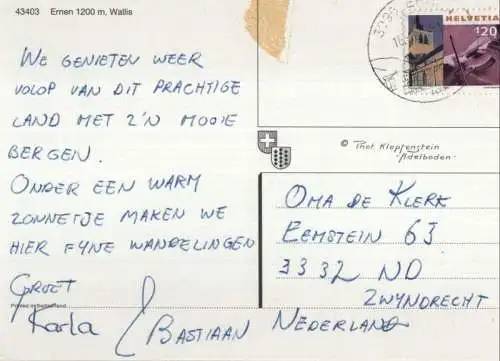 43403 Ernen 1200 m, Wallis
WE GENIETEN WEER
VOLOP VAN DIT PRACHTIGE
LAND MET Z'N MOOIE
BERGEN.
ONDER EEN WARM
ZONNETJE MAKEN WE
HIER FYNE WANDELINGEN
GROET
Karla / BASTIAAN
Printed in Switzerland
HELVETIA
120
© Thot Klopfenstein
Adelboden
OMA DE KLERK
EEMSTEIN 63
3332 ND
ZWYNDRECHT
NEDERLAND